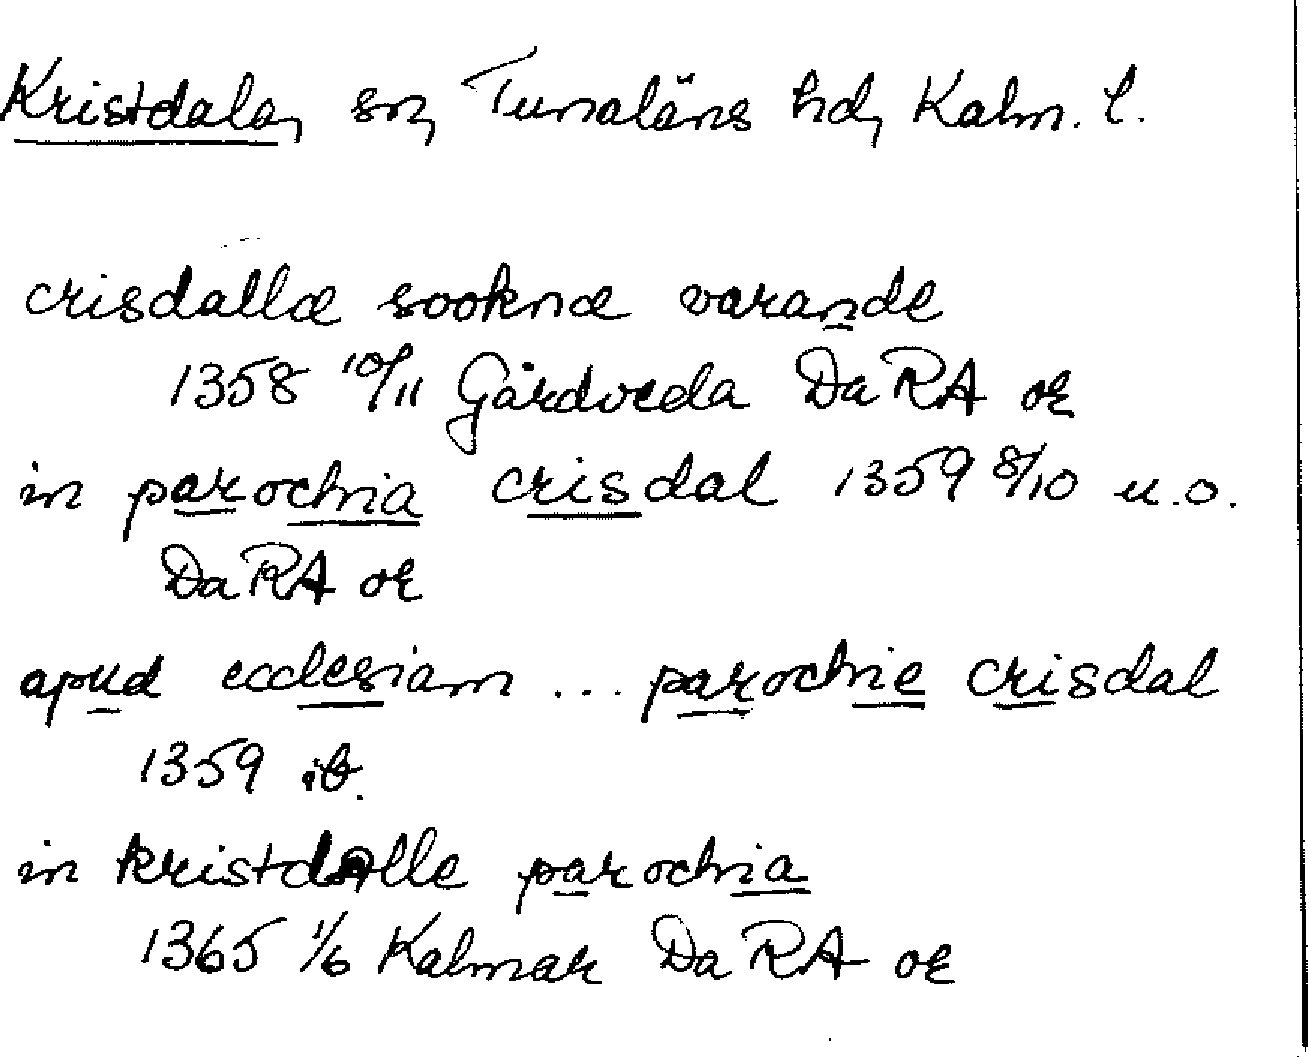 Kristdala, sn, Tunaläns hd, Kalm. l.
crisdallæ sooknæ varande
1358 10/11 Gårdveda Da RA or
in parochia crisdal 1359 8/10 u.o.
Da RA or
apud ecclesiam ... parochie crisdal
1359 ib.
in kristdalle parochia
1365 1/6 Kalmar Da RA or